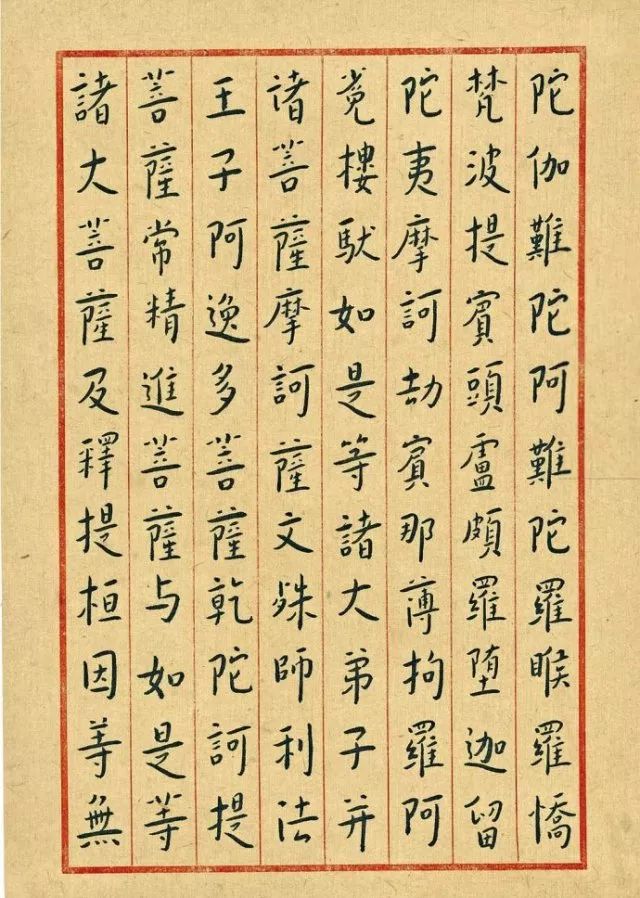 陀伽難陀阿難陀羅睺羅憍
梵波提賓頭盧頗羅堕迦留
陀夷摩訶劫賓那薄拘羅阿
㝹樓馱如是等諸大弟子并
诸菩薩摩訶薩文殊師利法
王子阿逸多菩薩乾陀訶提
菩薩常精進菩薩与如是等
諸大菩薩及釋提桓因等無